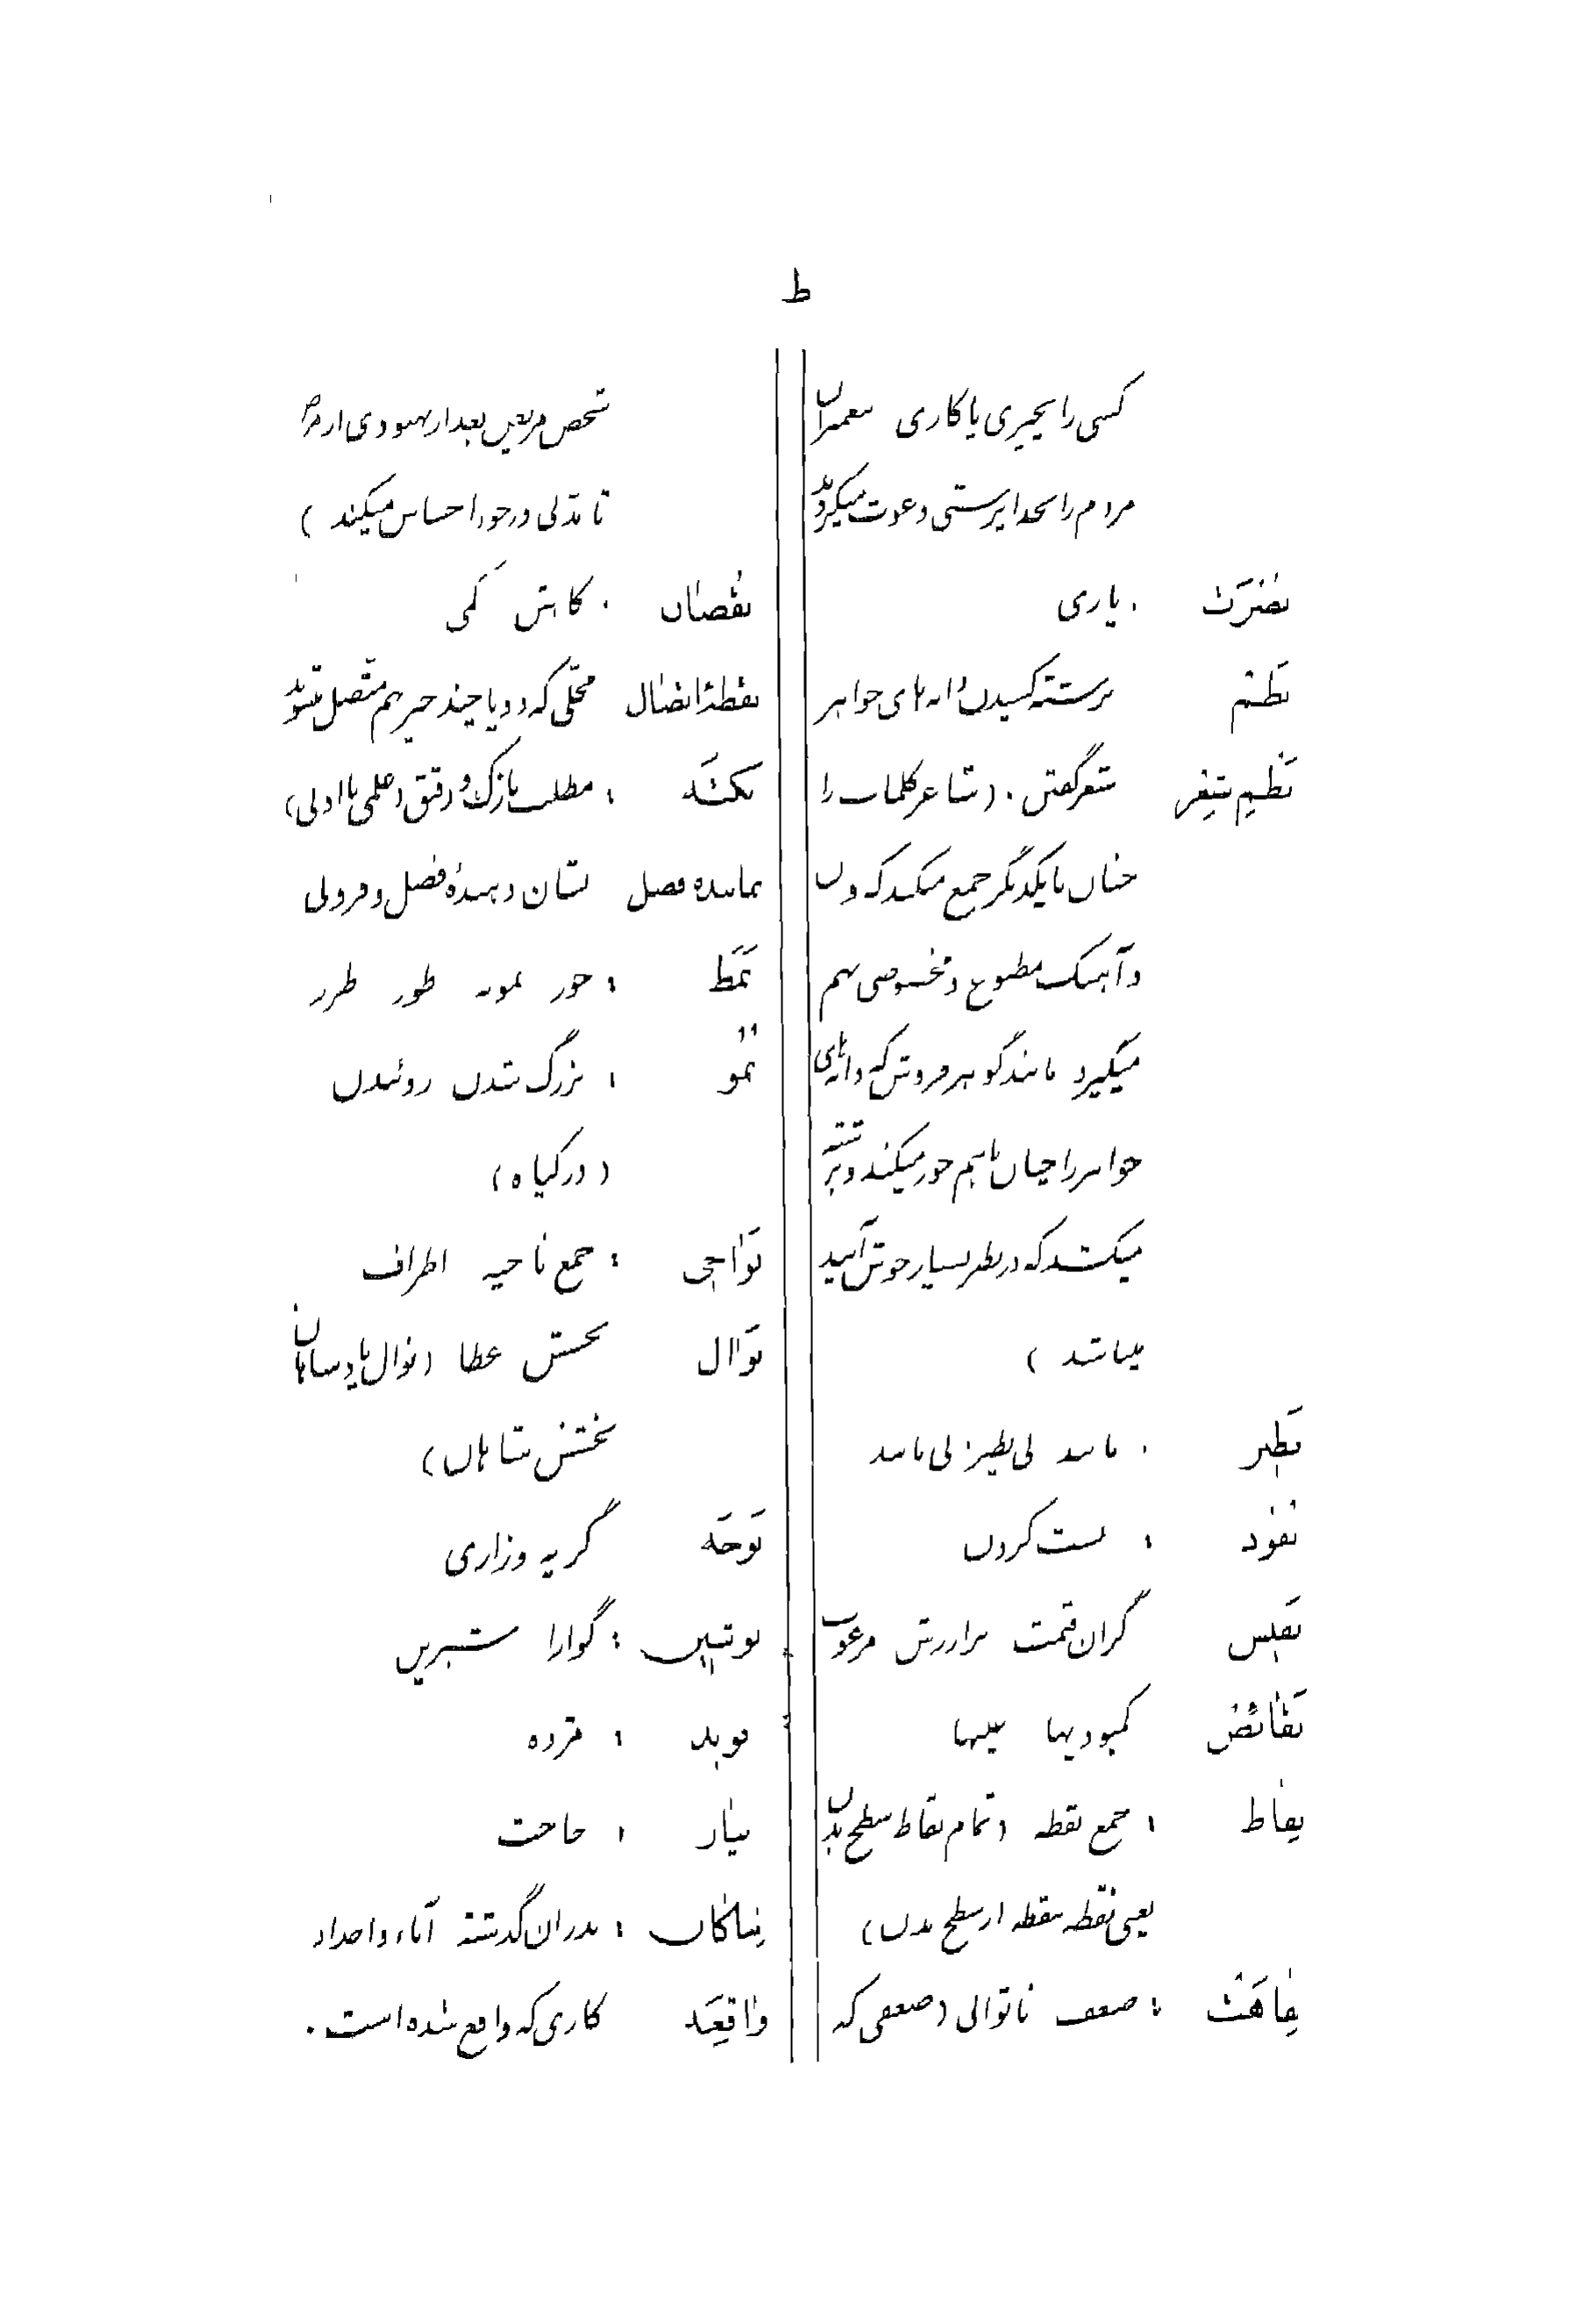 ط
کسی را بچیزی یا کاری پیغمبران
مردم را بخدا پرستی دعوت میکردند
نُصْرَت . یاری
نَظْم برشته کشیدن دانه های جواهر
نَظْمِ شِعْر شعر گفتن . (شاعر کلمات را
چنان با یکدیگر جمع میکند که وزن
و آهنگ مطبوع و مخصوصی بهم
میگیرد مانند گوهر فروش که دانه های
جواهر را چنان با هم جور میکند و برشته
میکشد که در نظر بسیار خوش آیند
میباشد )
نَظیر . مانند بی نظیر: بی مانند
نُفوذ : سست کردن
نَفیس گران قیمت با ارزش مرغوب
نَقائِص کمبودیها عیبها
نِقاط : جمع نقطه (تمام نقاط سطح بدن
یعنی نقطه بنقطه از سطح بدن)
نِقاهَت : ضعف ناتوانی (ضعفی که
شخص مریض بعد از بهبودی از مرض
تا مدتی در خود احساس میکند )
نُقْصان . کاهش کمی
نقطهٔ اتصال محلّی که دو یا چند چیز بهم متّصل میشوند
نُکْتَه : مطلب نازک و دقیق (علمی یا ادبی)
نماینده فضل نشان دهندهٔ فضل و فزونی
نَمَط : جور نمونه طور طرز
نُمُو : بزرگ شدن روئیدن
(در گیاه)
نَواحی : جمع ناحیه اطراف
نَوال بخشش عطا (نوال پادشاهان
بخشش شاهان)
نَوحَه گریه و زاری
نوشین : گوارا شیرین
نوید : مژده
نیاز : حاجت
نیاکان : پدران گذشته آباء و اجداد
واقِعَه کاری که واقع شده است .